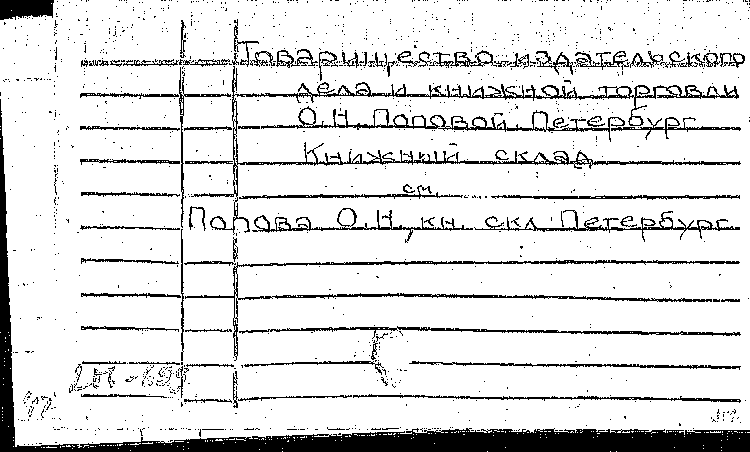 Товарищество издательского
дела и книжной торговли
О.Н. Поповой. Петербург
Книжный склад
см.
Попова О.Н., кн. скл. Петербург.